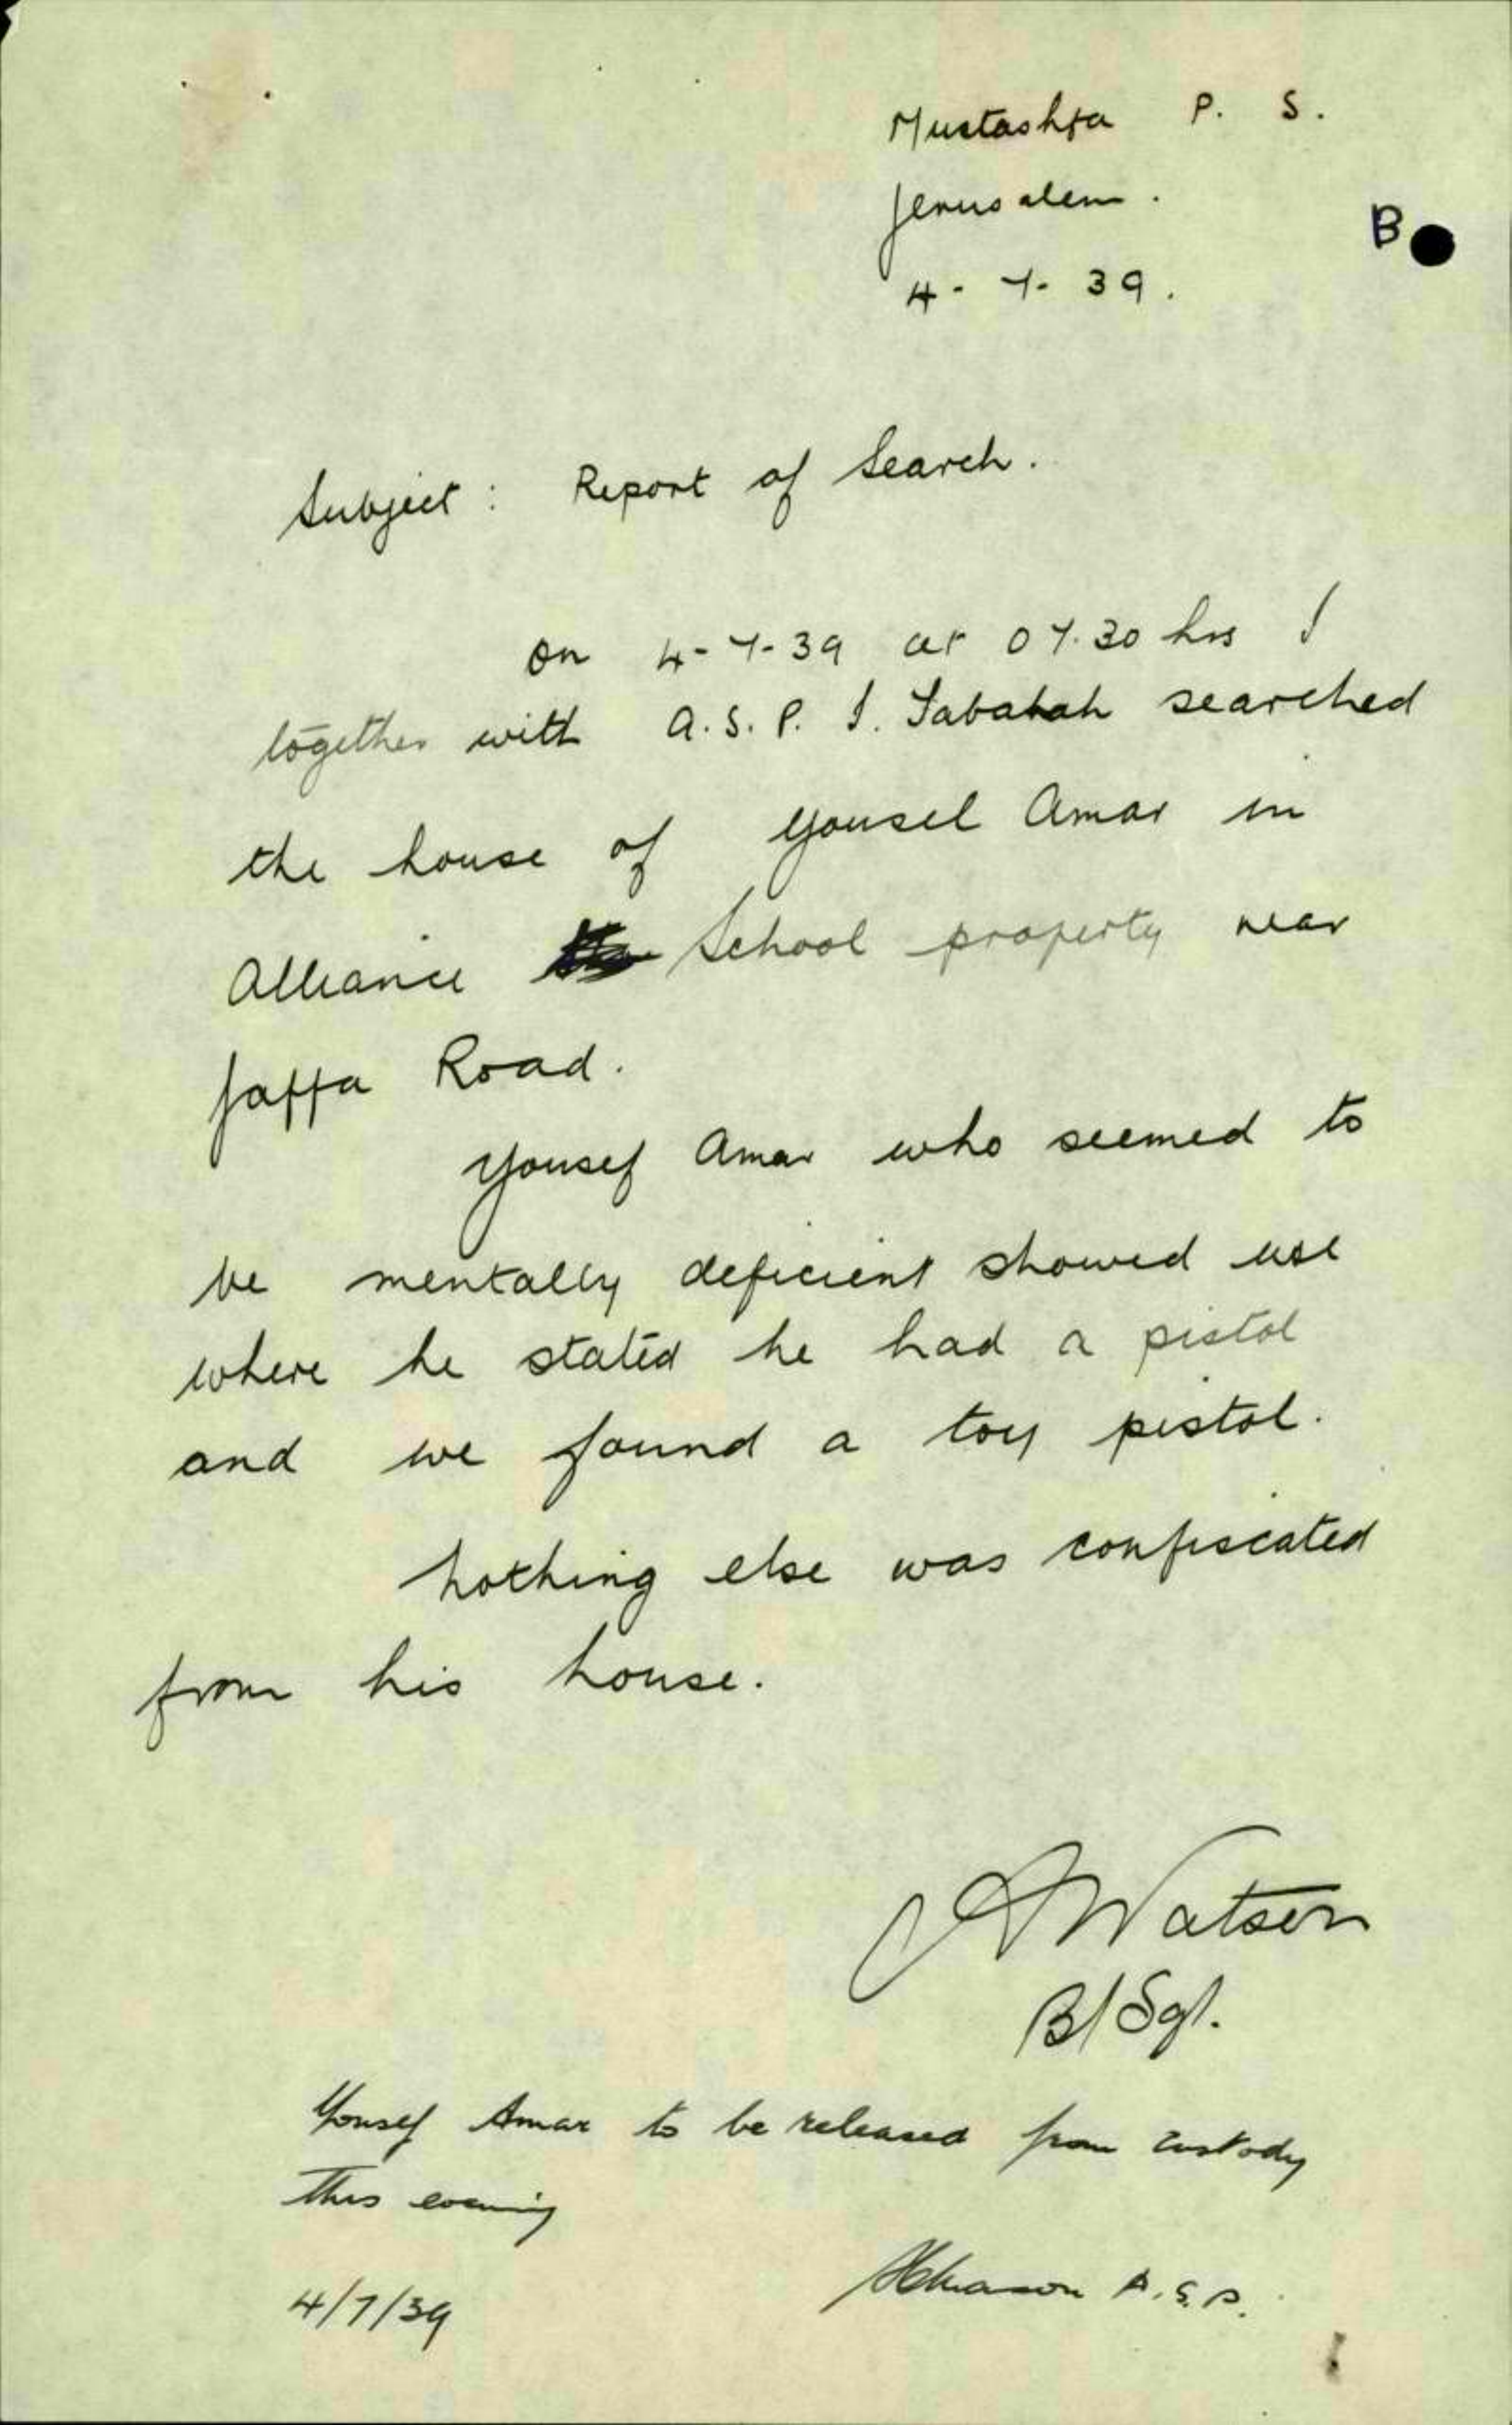 Mustashfa P. S.
Jerusalem.
B
4-7-39.
Subject: Report of Search.
On 4-7-39 at 07.30 hrs I
together with A.S.P. I. Sabahah searched
the house of Yousel Amar in
Alliance School property near
Jaffa Road.
Yousef Amar who seemed to
be mentally deficient showed use
where he stated he had a pistol
and we found a toy pistol.
Nothing else was confiscated
from his house.
A Watson
B/Sgt.
Yousef Amar to be released from custody
this evening
A.S.P.
4/7/39